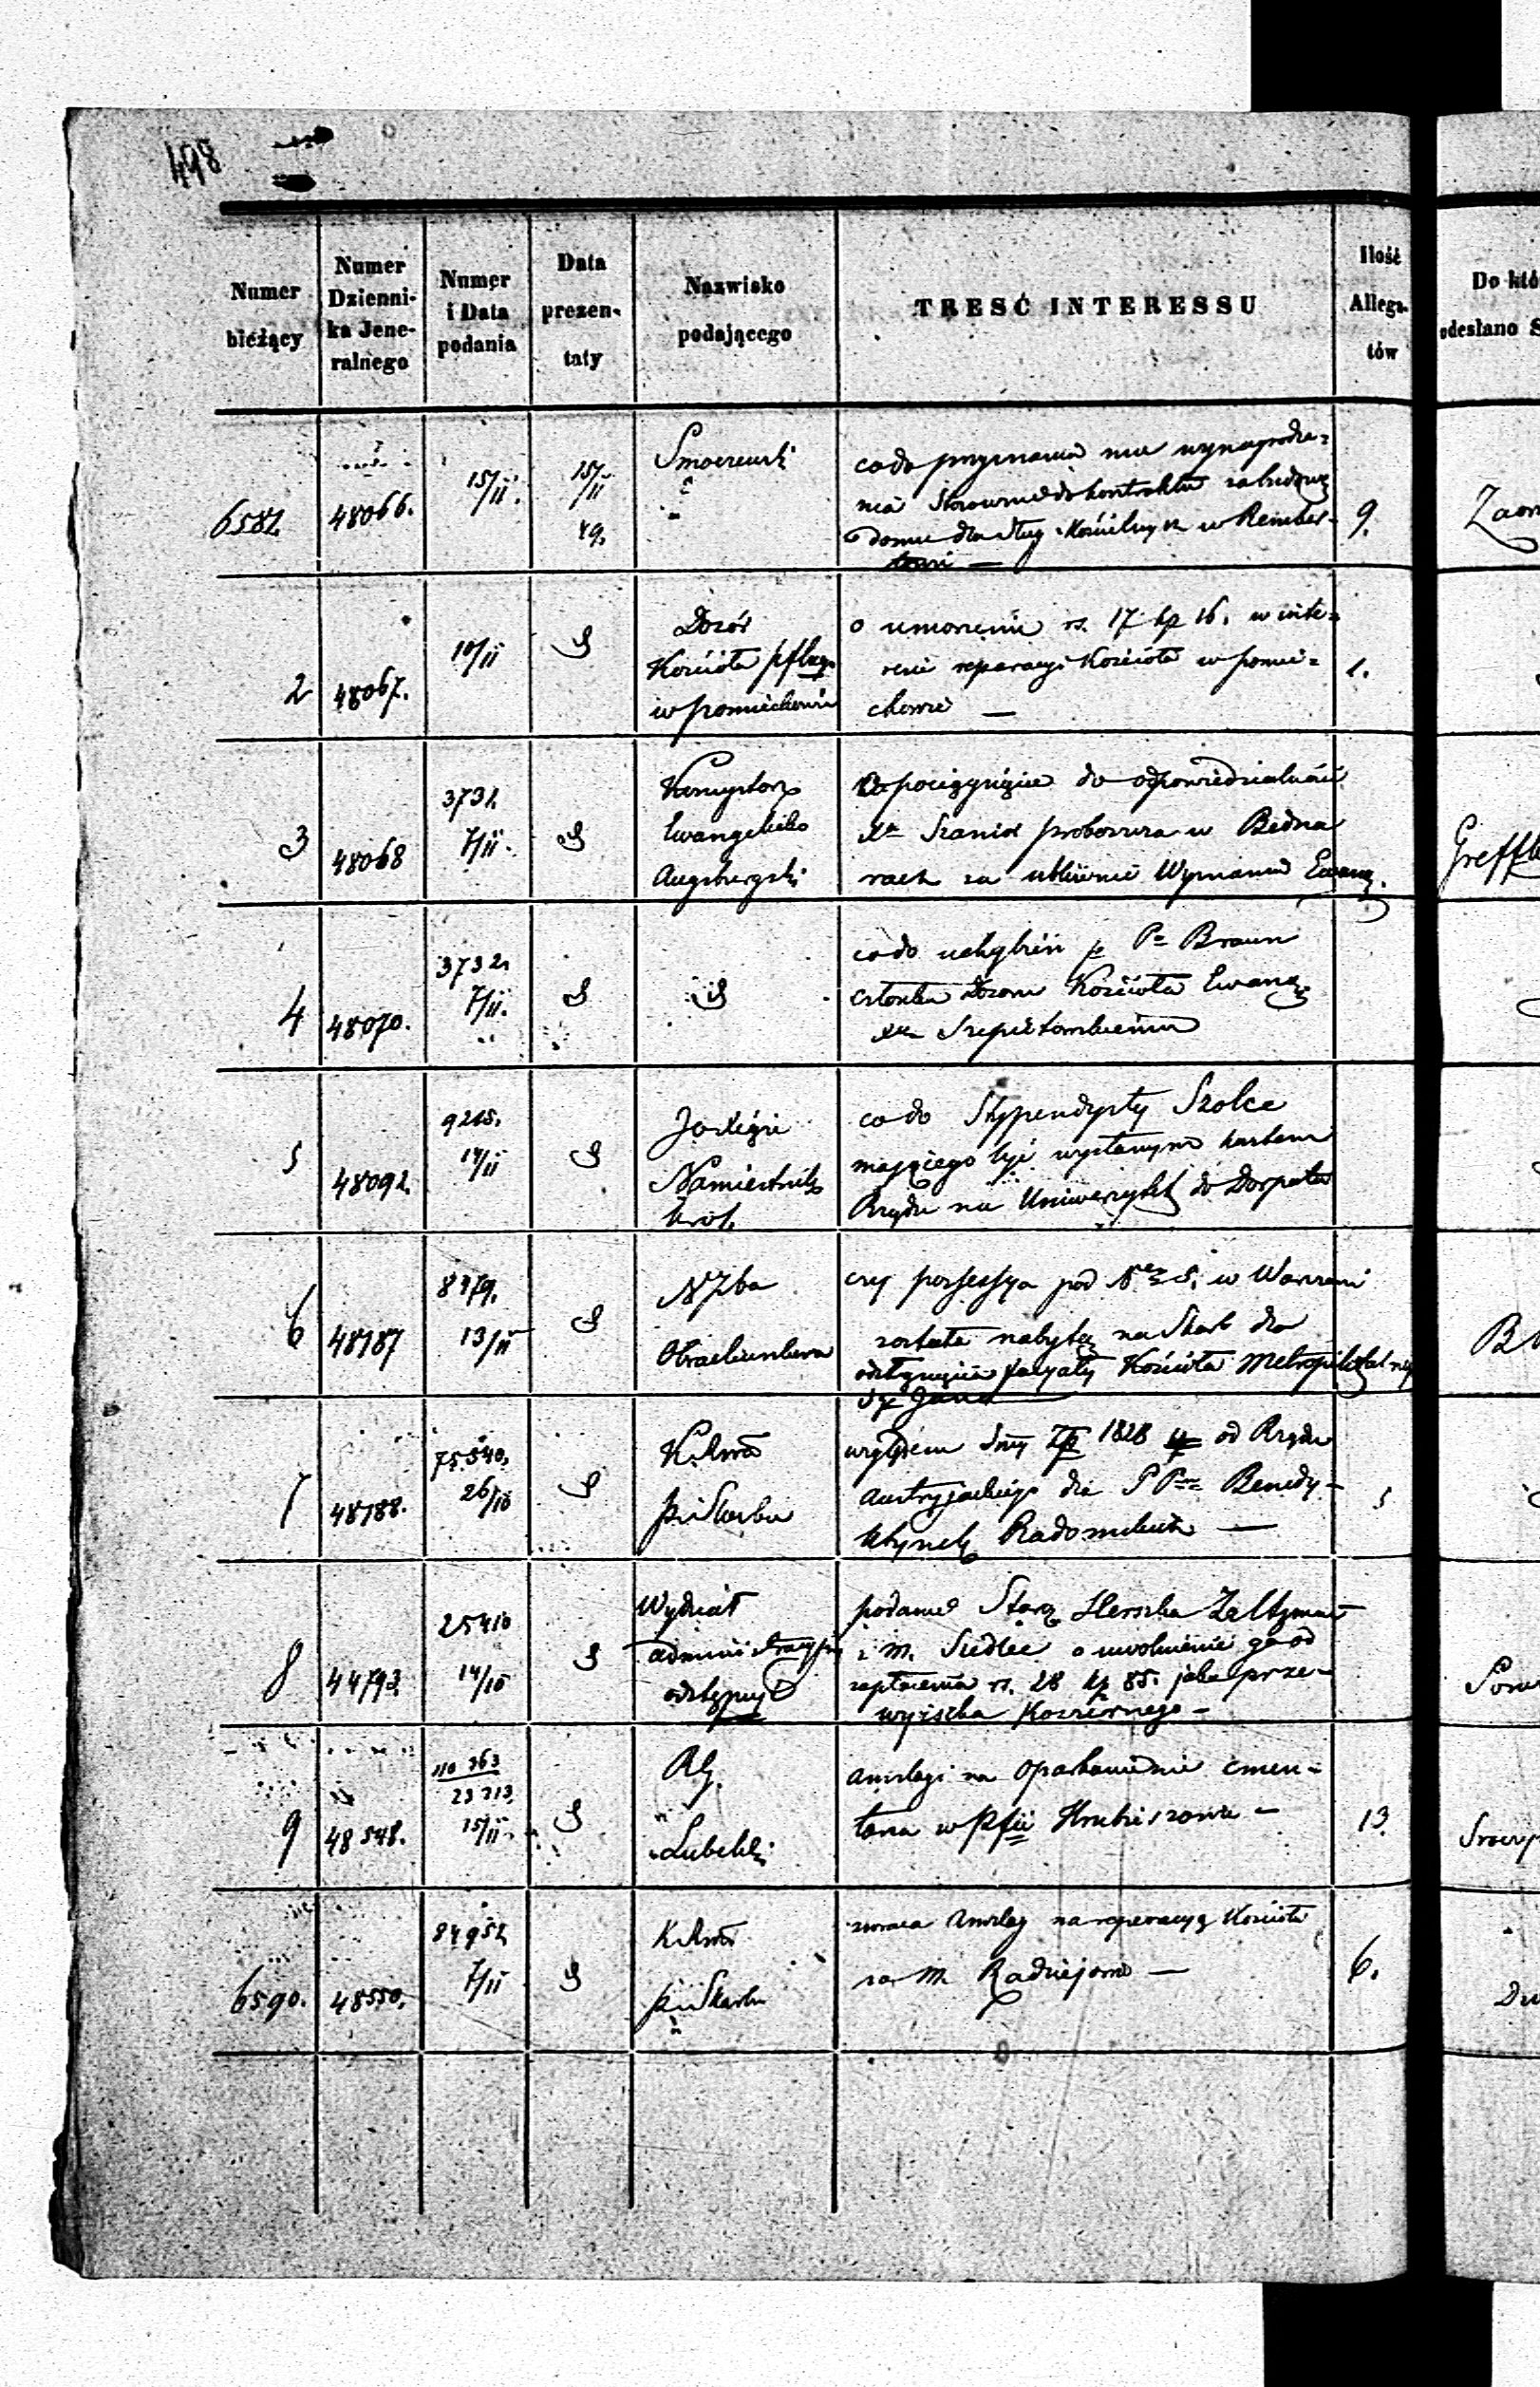 498
Numer bieżący
Numer Dzienni-ka Jene-ralnego
Numer i Data podania
Data prezen-taty
Nazwisko podającego
TRESĆ INTERESSU
Ilość Allega-tów
Do któ
odesłano S
6581. 48066. 15/11. 15/11 49. Smoczewski
co do przyznania mu wynagrodze=
nia Stosownie do kontraktu za budowę
domu dla Sług Kościelnych w Rember-
towie — 9.
2 48067. 10/11 Dozór
Kościoła
w pomiechowie
o umorzenie rs. 17 kp 16. w inte=
resie reparacyi Kościoła w pomie=
chowie — 1.
3 48068 3731. 7/11. Konsystorz
Ewangelicko
Augsburgski
do odpowiedzialności
proboszcza w Bedna
rach za ubliżenie Wyznaniu Ewang.
4 48070. 3732. 7/11.
co do uchybień p Pa Braun
członka Dozoru Kościoła Ewang.
5 48092. 9215. 14/11 JO Xięcia
Namiestnika
Król.
co do Stypendysty Szolce
mającego być wysłanym kosztem
Rządu na Uniwersytet do Dorpatu
6 48187 8479. 13/11 N Izba
Obrachunkowa
czy possessya pod No 5. w Warszawie
została nabytą na Skarb dla
odsłonięcia facyaty Kościoła Metropolitalnego
Sgo Jana
7 48188. 75540. 26/10 K. Rząd.
P. i Skarbu
względem Summy Zp 1828 od Rządu
Austryjackiego dla P Pn Benedy-
ktynek Radomskich —
8 44793. 25410 14/10 Wydział
administracyjny
odstępuje
podanie Starz. Herszka Zeltzman
z m. Siedlec o uwolnienie go od
zapłacenia rs. 28 kp 85. jako prze-
wyżska Koszernego —
9 48548. 110363 23713. 15/11. RG.
Lubelski
Anszlagi na Oparkanienie cmen-
tarza w Pfii Hrubieszowie — 13.
6590. 48550. 84952 7/11 K. Rząd.
P. i Skarbu
zwraca Anszlag na reperacyą Kościoła
m. Radziejowie — 6.